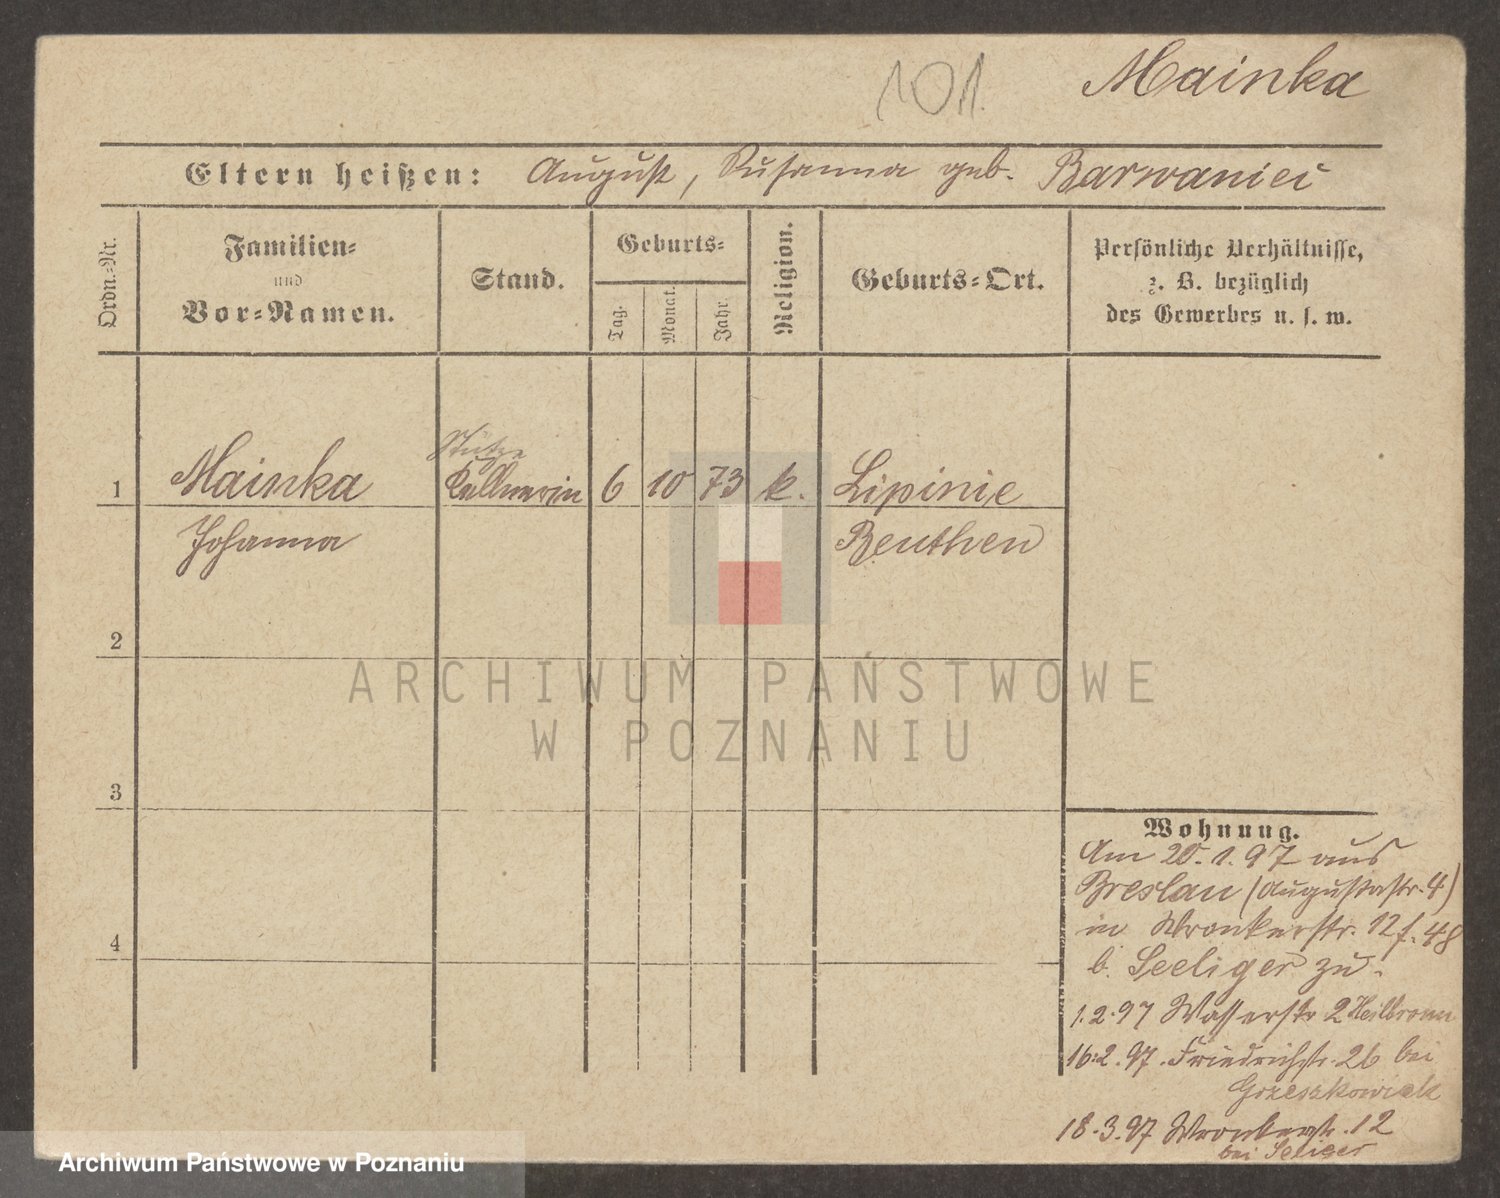 101.
Mainka
Eltern heißen: August, Susanna geb. Barwaniei
Ordn.-Nr.
Familien-
und
Vor-Namen.
Stand.
Geburts-
Tag.
Monat.
Jahr.
Religion.
Geburts-Ort.
Persönliche Verhältnisse,
z. B. bezüglich
des Gewerbes u. s. w.
Stütze
1 Mainka Kellnerin 6 10 73 k. Lipinie
Johanna Beuthen
2
3
4
Wohnung.
Am 20.1.97 aus
Breslau (Augustastr. 4)
in Wronkerstr. 12 f. 48
b. Seeliger zu.
1.2.97 Wasserstr 2 Heilbronn
16.2.97. Friedrichstr. 26 bei
Grzeszkowiak
18.3.97 Wronkerstr. 12
bei Seliger
ARCHIWUM PAŃSTWOWE
W POZNANIU
Archiwum Państwowe w Poznaniu